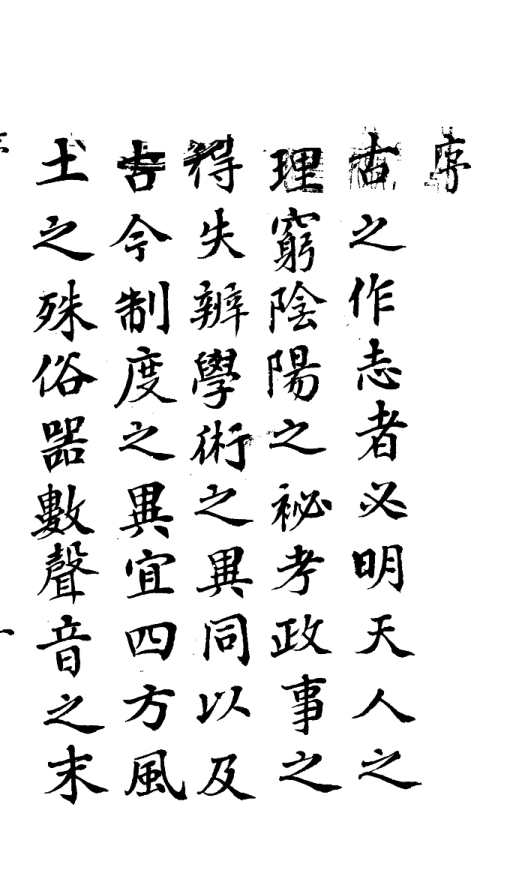 序
古之作志者必明天人之
理窮陰陽之祕考政事之
得失辨學術之異同以及
古今制度之異宜四方風
土之殊俗器數聲音之末